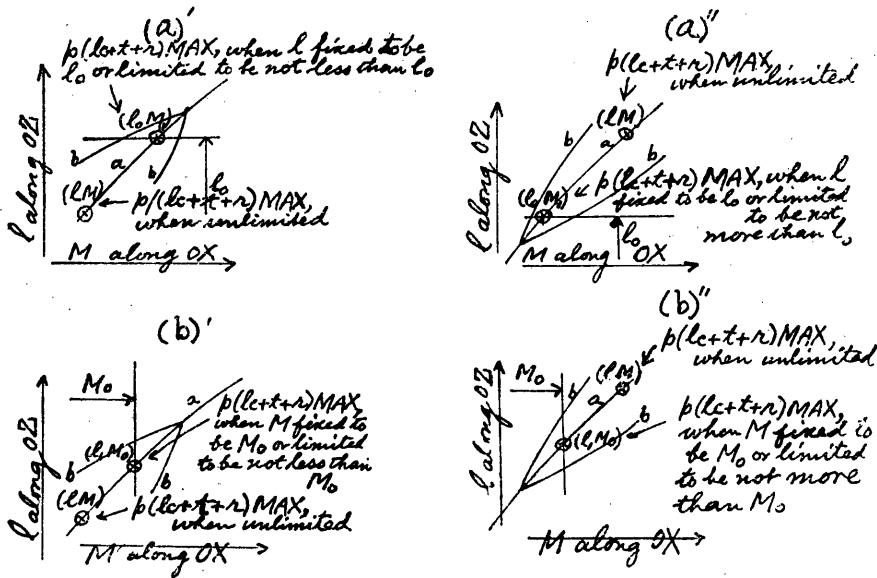 (a)'
p(lc+t+r)MAX, when l fixed to be
l₀ or limited to be not less than l₀
(l₀M)
b
a
b
l₀
(lM)
p/(lc+t+r)MAX,
when unlimited
l along OZ
M along OX
(a)"
p(lc+t+r)MAX,
when unlimited
(lM)
b
a
b
(l₀M₀)
p(lc+t+r)MAX, when l
fixed to be l₀ or limited
to be not
more than l₀
l₀
l along OZ
M along OX
(b)'
M₀
a
p(lc+t+r)MAX,
when M fixed to
be M₀ or limited
to be not less than
M₀
(l,M₀)
b
b
(lM)
p(lc+t+r)MAX,
when unlimited
l along OZ
M along OX
(b)"
p(lc+t+r)MAX,
when unlimited
M₀
(lM)
b
a
b
(l,M₀)
p(lc+t+r)MAX,
when M fixed is
be M₀ or limited
to be not more
than M₀
l along OZ
M along OX